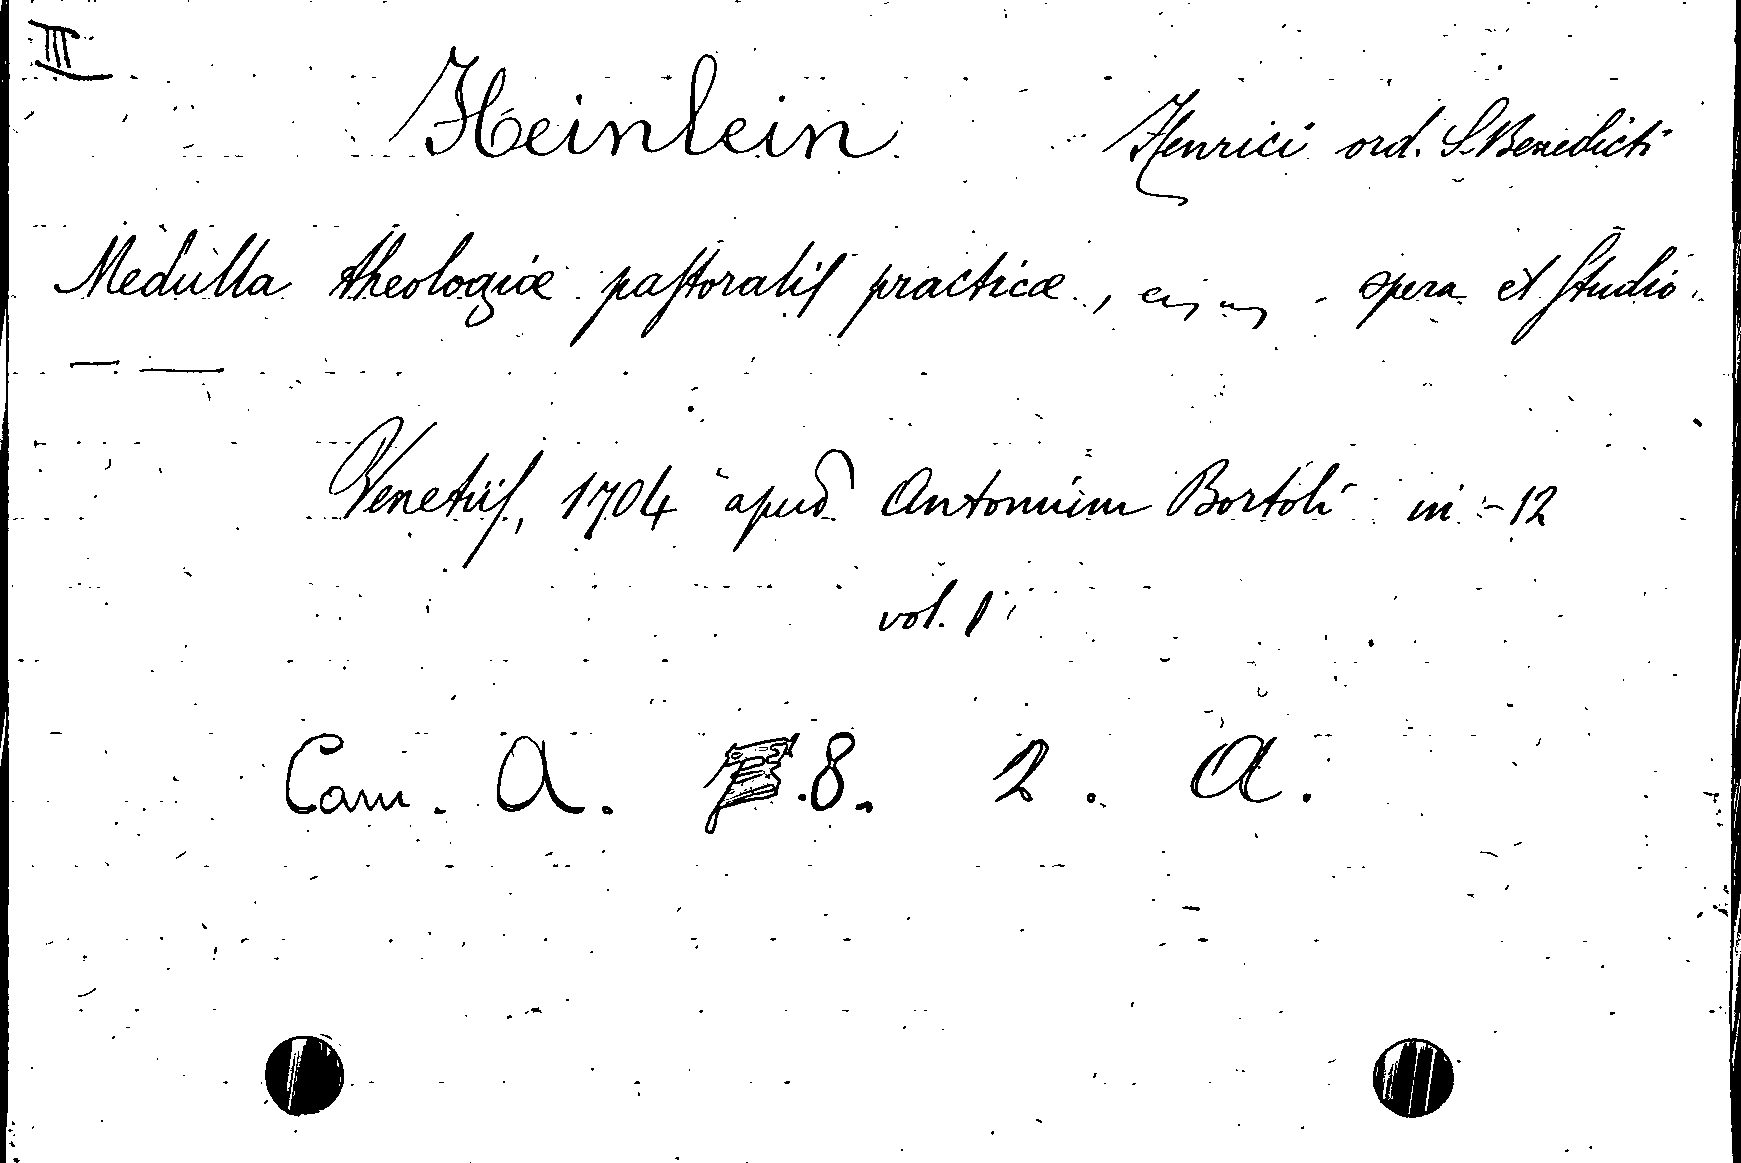 III
Heinlein Henrici ord. S. Benedicti
Medulla theologiæ paſtoraliſ practicæ, opera et ſtudio
— —
Venetiiſ, 1704 apud Antonium Bortoli in - 12
vol. 1
Cam. A. .8. 2. A.